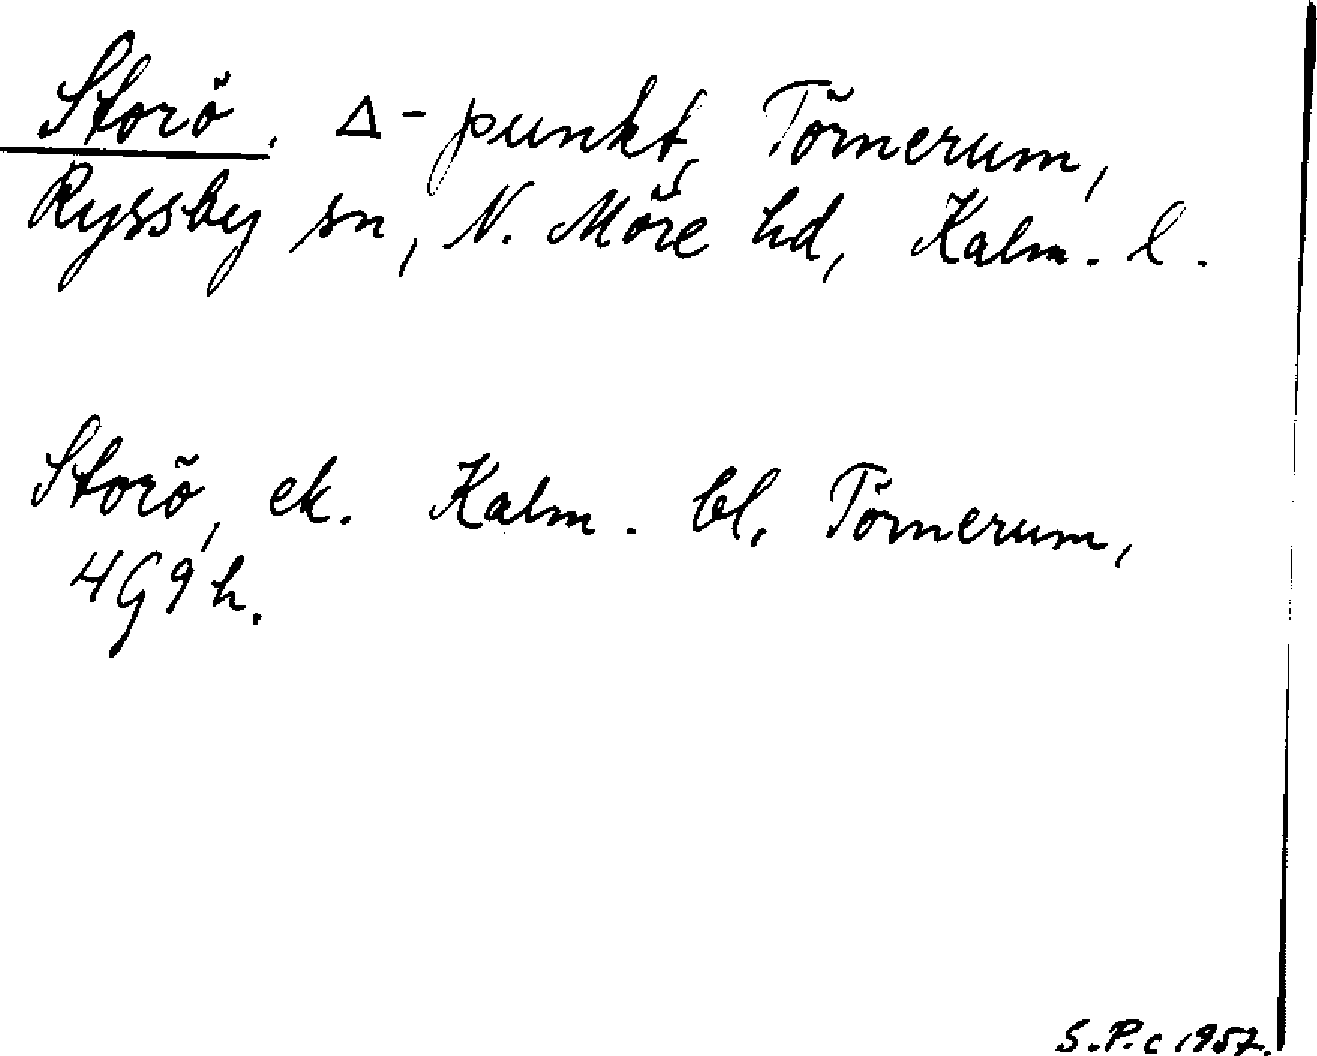 Storö. Δ-punkt, Törnerum,
Ryssby sn, N. Möre hd, Kalm. l.
Storö, ek. Kalm. bl. Törnerum,
4G9h.
S.P.c 1957.